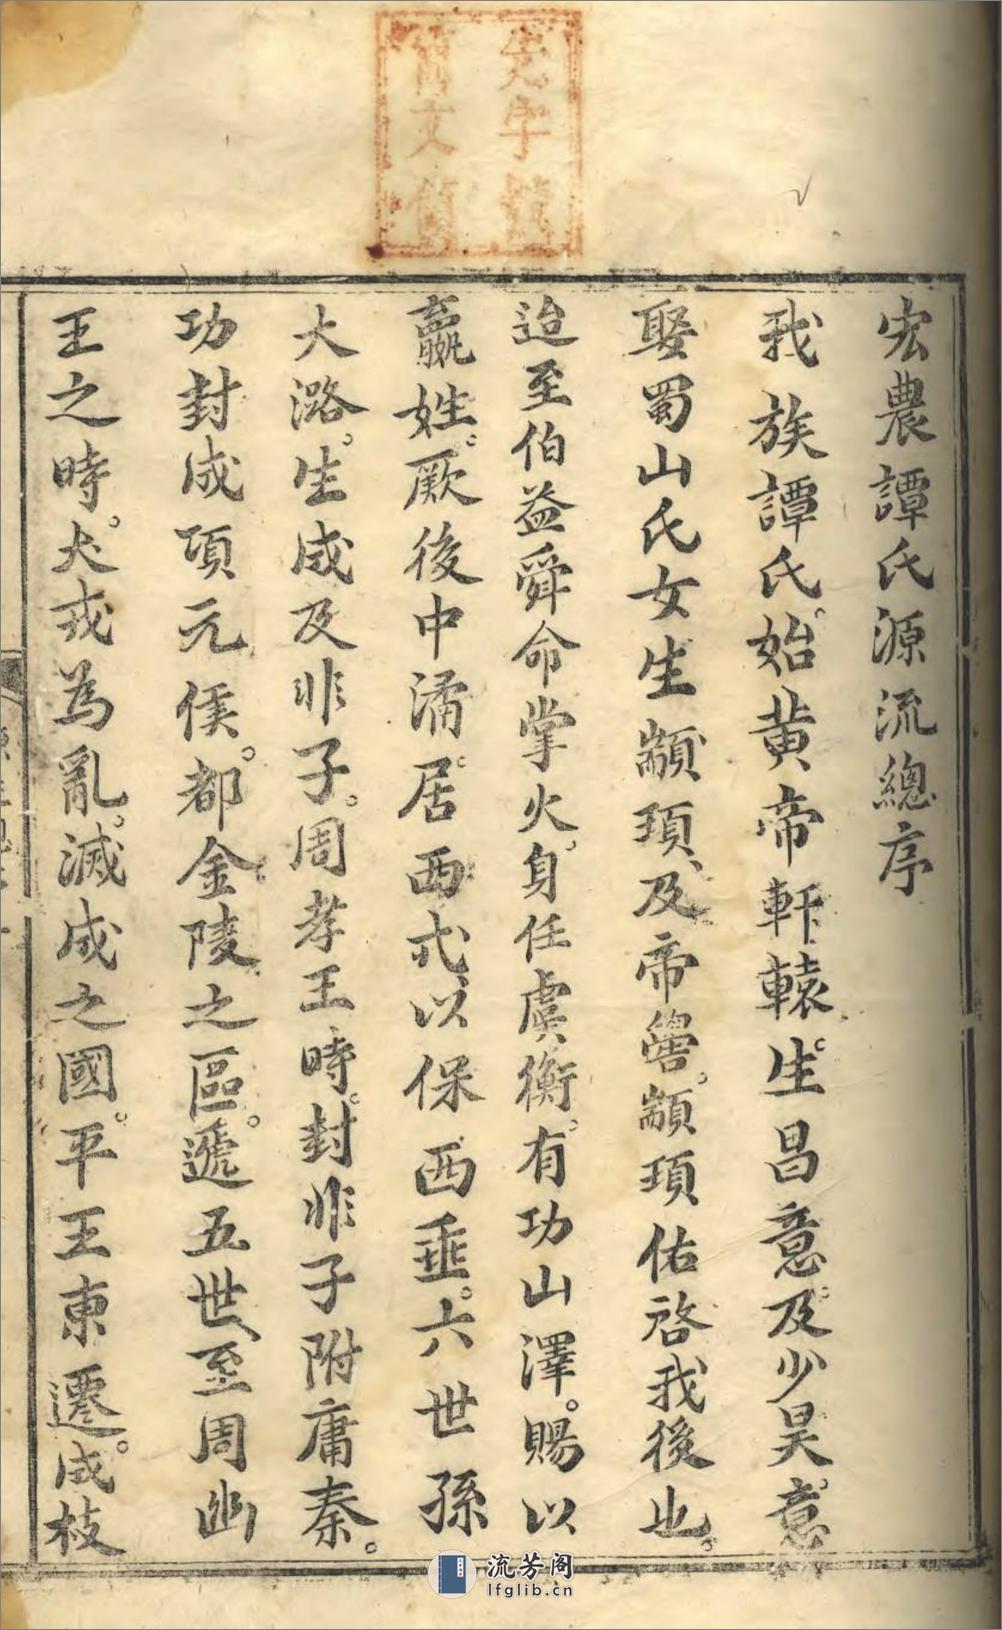 宏農譚氏源流總序
我族譚氏。始黄帝軒轅。生昌意。及少昊。意
娶蜀山氏女生顓頊、及帝嚳。顓頊佑啓我後也。
迨至伯益舜命掌火。身任虞衡。有功山澤。賜以
嬴姓。厥後中潏。居西戎、以保西垂。六世孫
大潞。生成及非子。周孝王時。封非子附庸秦。
功封成項元侯。都金陵之區。遞五世、至周幽
王之時。犬戎為亂。滅成之國。平王東遷。成枝
流芳阁
lfglib.cn